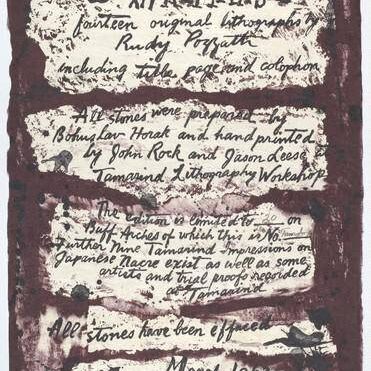 fourteen original lithographs by
Rudy Pozzatti
including title page and colophon
All stones were prepared by
Bohuslav Horak and handprinted
by John Rock and Jason Leese
Tamarind Lithography Workshop
The edition is limited to 20 on
Buff Arches of which this is No.
Further Nine Tamarind Impressions on
Japanese Nacre exist as well as some
artists and trial proofs recorded
at Tamarind
All stones have been effaced
March